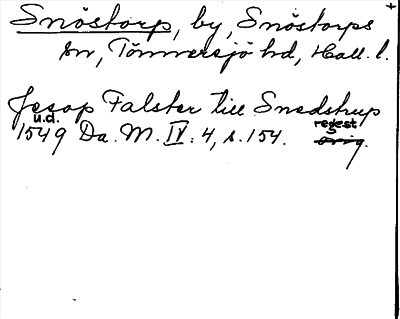 Snöstorp, by, Snöstorps
sn, Tönnersjö hd, Hall. l.
Jesop Falster till Snedstrup
u.d. regest
1549 Da. M. IV: 4, s. 154. orig.